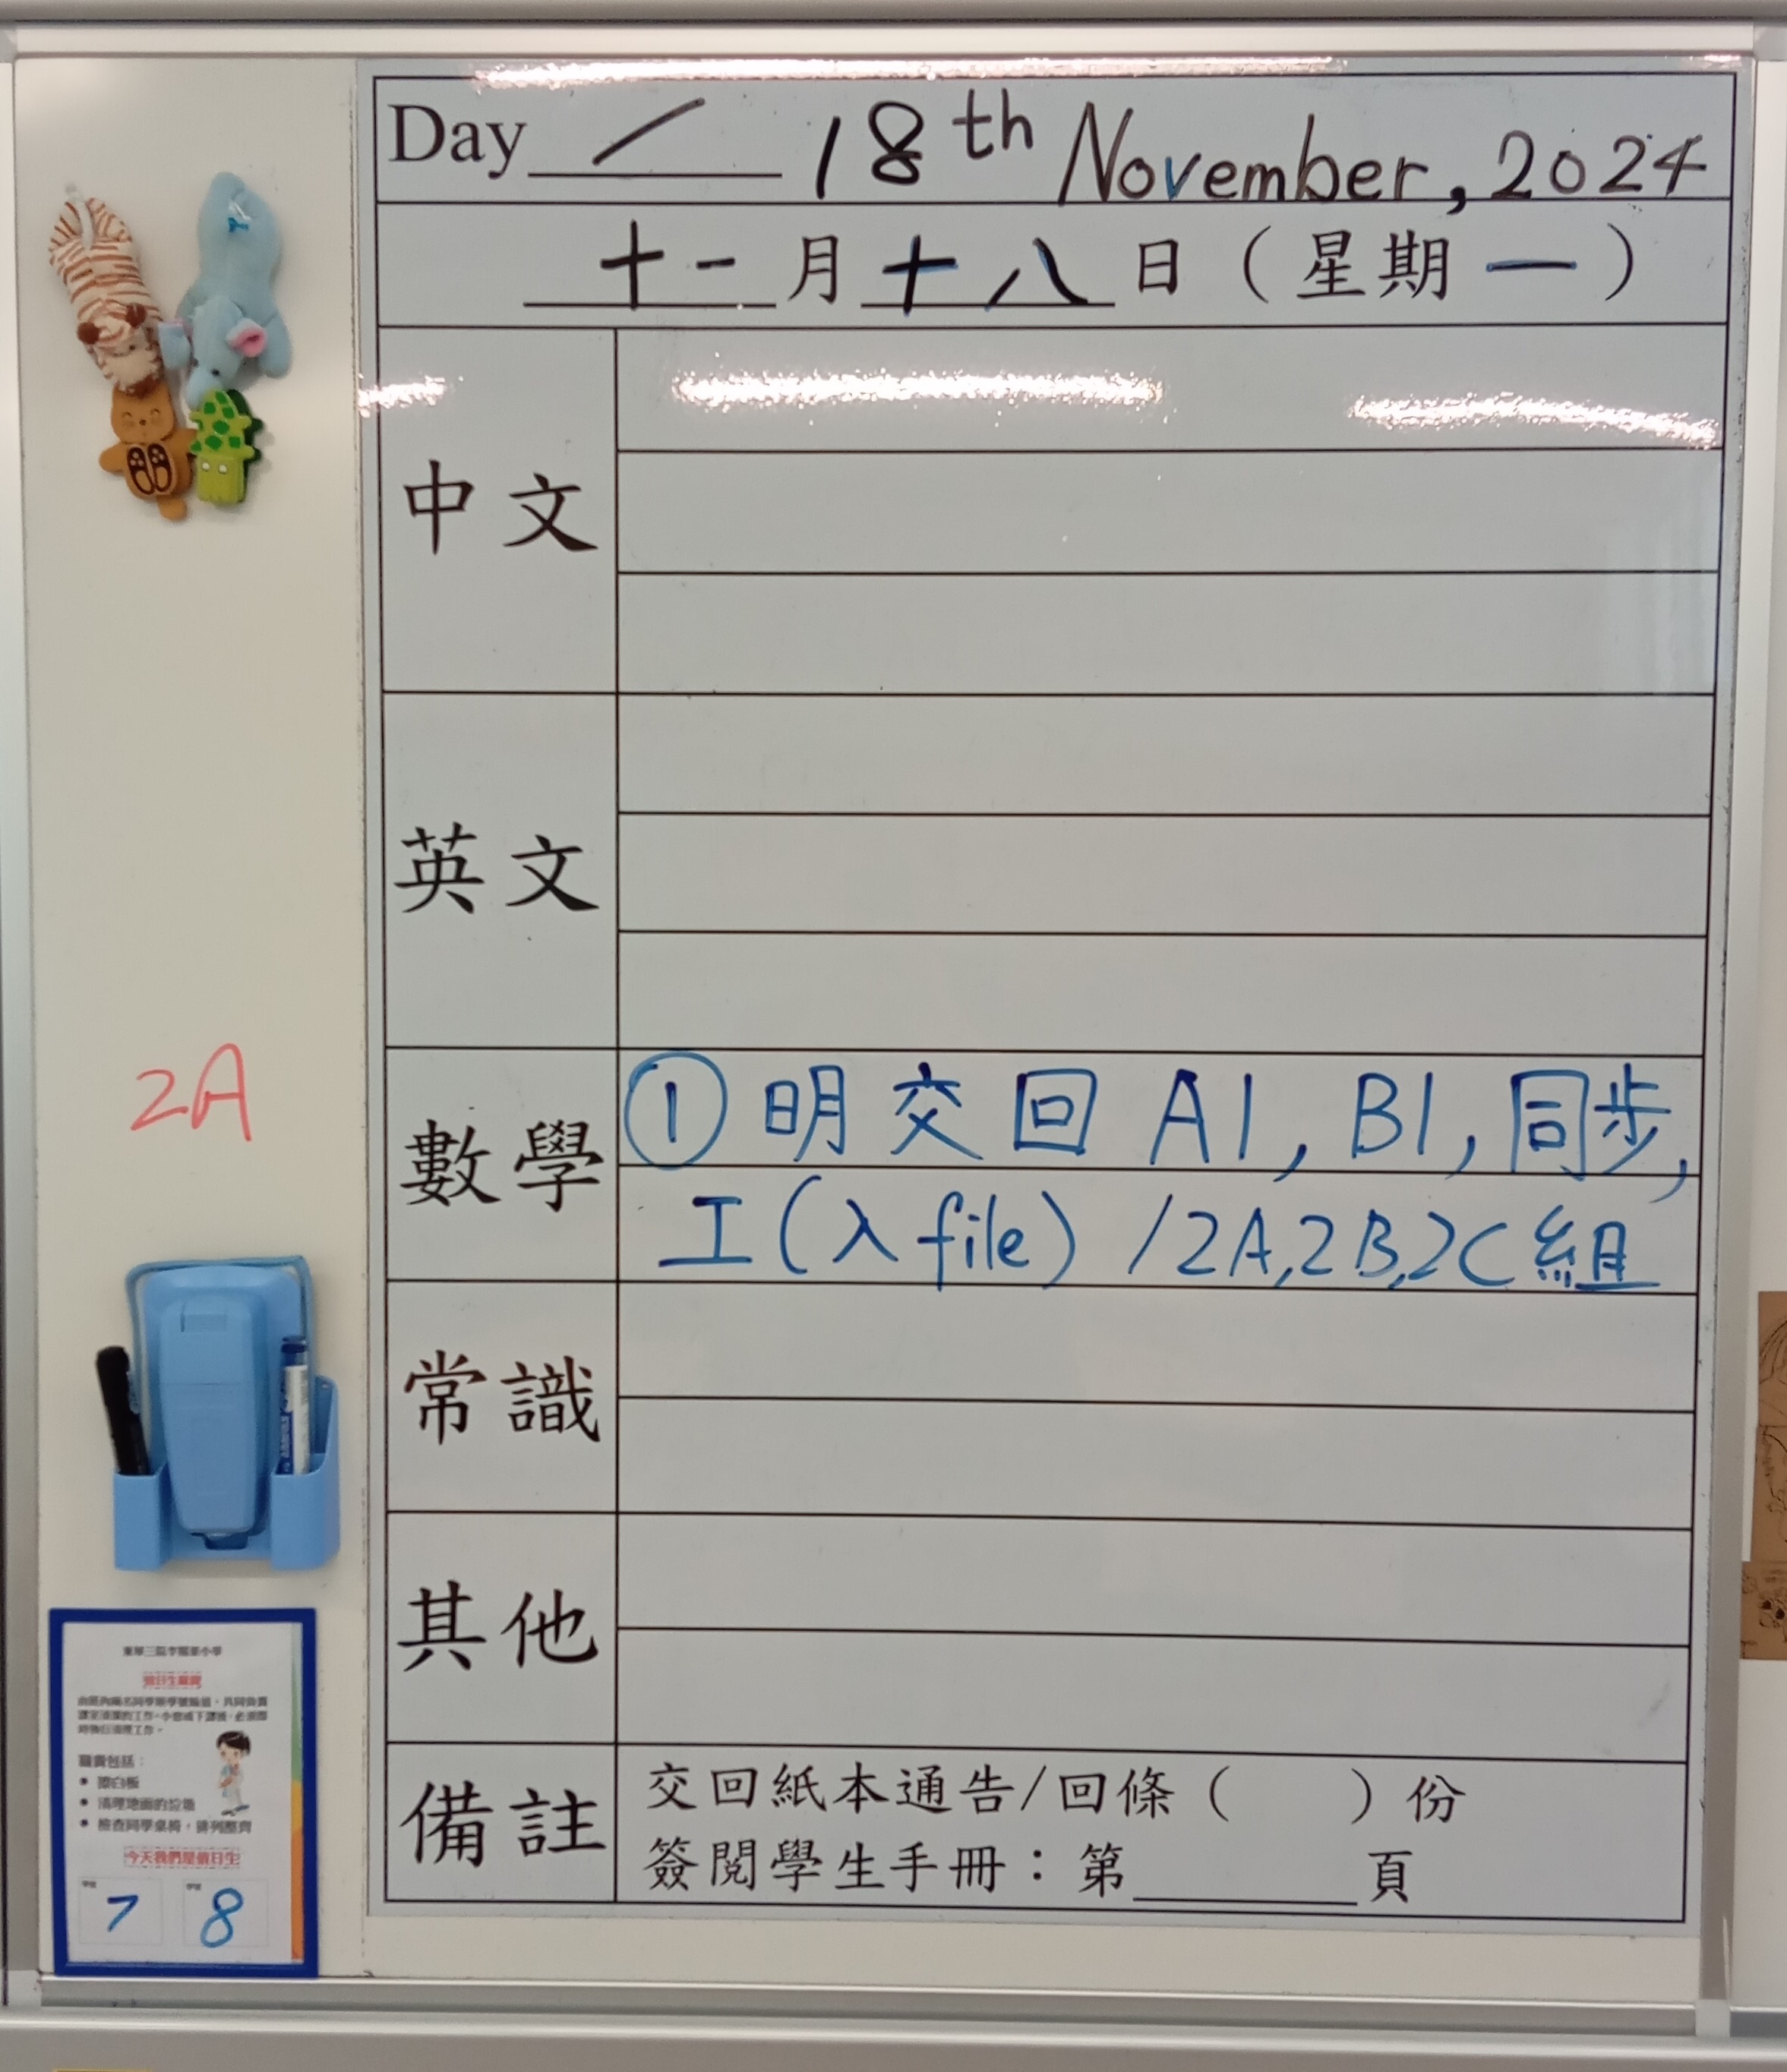 Day / 18th November, 2024
十一月十八日（星期一）
中文
英文
數學
① 明交回 A1, B1, 同步,
工(入file) / 2A, 2B, 2C組
常識
其他
備註
交回紙本通告/回條（ ）份
簽閱學生手冊：第______頁
2A
職責包括：
擦白板
清理地面的垃圾
檢查同學桌椅，排列整齊
今天我們是值日生
7 8